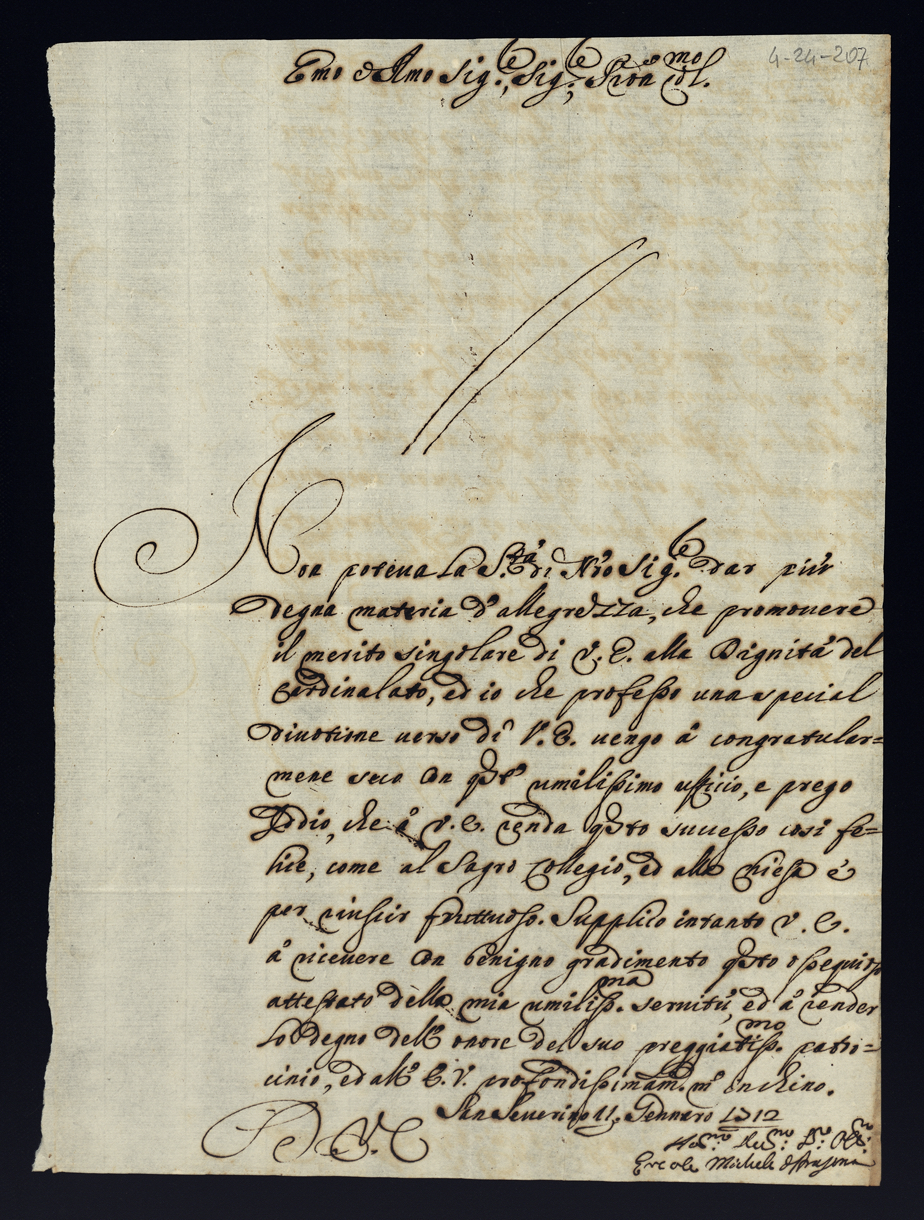 4-24-207
Emo e Rmo Sig.re, Sig.re, Pron Col.mo
Non poteua La S.tà di Nro Sig.re dar più
degna materia d'allegrezza, che promouere
il merito singolare di V. E. alla Dignità del
Cardinalato, ed io che professo una special
diuotione uerso di V. E. uengo à congratular=
mene seco con qsto umilissimo ufficio, e prego
Iddio, che à V. E. renda qsto successo così fe=
lice, come al Sagro Collegio, ed alla Chiesa è
per riuscir fruttuoso. Supplico intanto V. E.
à riceuere con benigno gradimento qsto ossequioso
attestato della mia umiliss.ma seruitù, ed à render
lo degno dell' onore del suo preggiatiss.mo patro=
cinio, ed all' E. V. profondissimam. m' inchino.
San Seuerino 11, Gennaro 1712
D V. E.
Ercole Michele